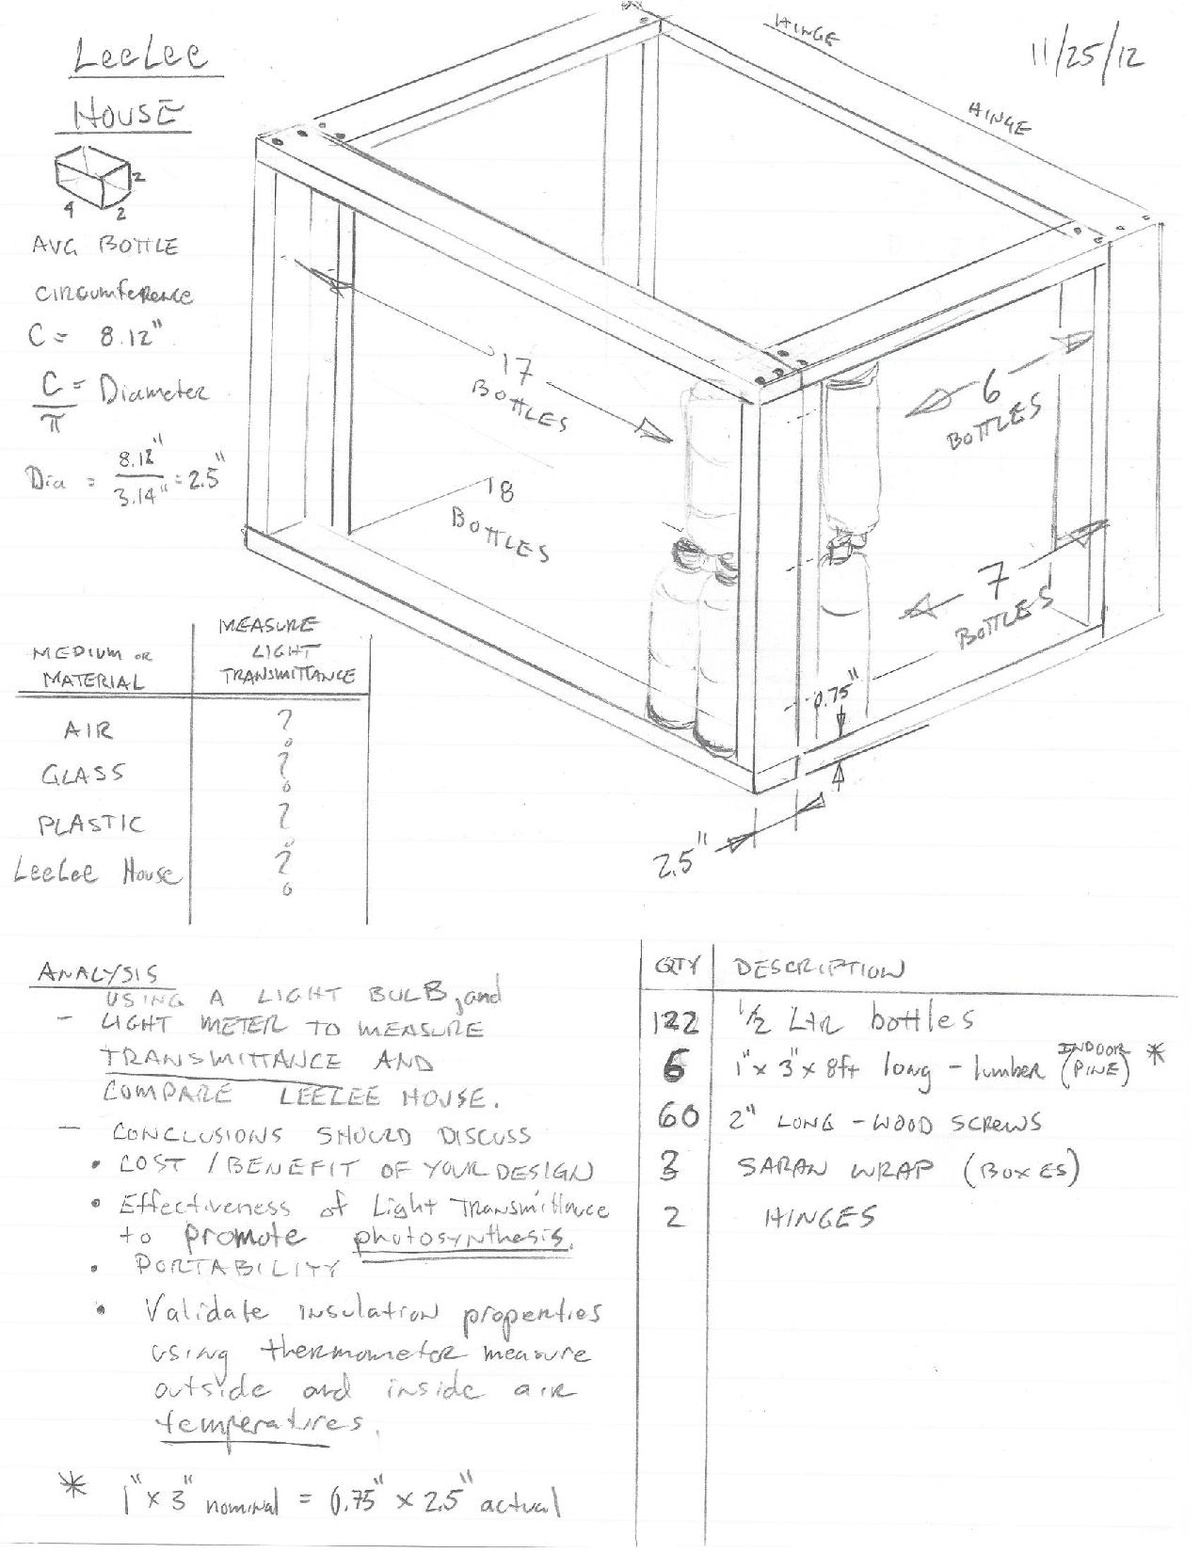 LeeLee
HOUSE
11/25/12
HINGE
HINGE
2
4
2
AVG BOTTLE
CIRCUMFERENCE
C = 8.12"
C/π = Diameter
Dia = 8.12"/3.14" = 2.5"
17
BOTTLES
18
BOTTLES
6
BOTTLES
7
BOTTLES
0.75"
2.5"
MEDIUM OR MATERIAL
MEASURE LIGHT TRANSMITTANCE
AIR ?
GLASS ?
PLASTIC ?
LEELEE HOUSE ?
ANALYSIS
USING A LIGHT BULB, and
- LIGHT METER TO MEASURE
TRANSMITTANCE AND
COMPARE LEELEE HOUSE.
- CONCLUSIONS SHOULD DISCUSS
• COST / BENEFIT OF YOUR DESIGN
• Effectiveness of Light Transmittance
to promote photosynthesis.
• PORTABILITY
• Validate insulation properties
using thermometer measure
outside and inside air
temperatures.
* 1" x 3" nominal = 0.75" x 2.5" actual
QTY DESCRIPTION
122 1/2 LTR bottles
6 1" x 3" x 8ft long - lumber (INDOOR PINE) *
60 2" LONG - WOOD SCREWS
3 SARAN WRAP (BOXES)
2 HINGES